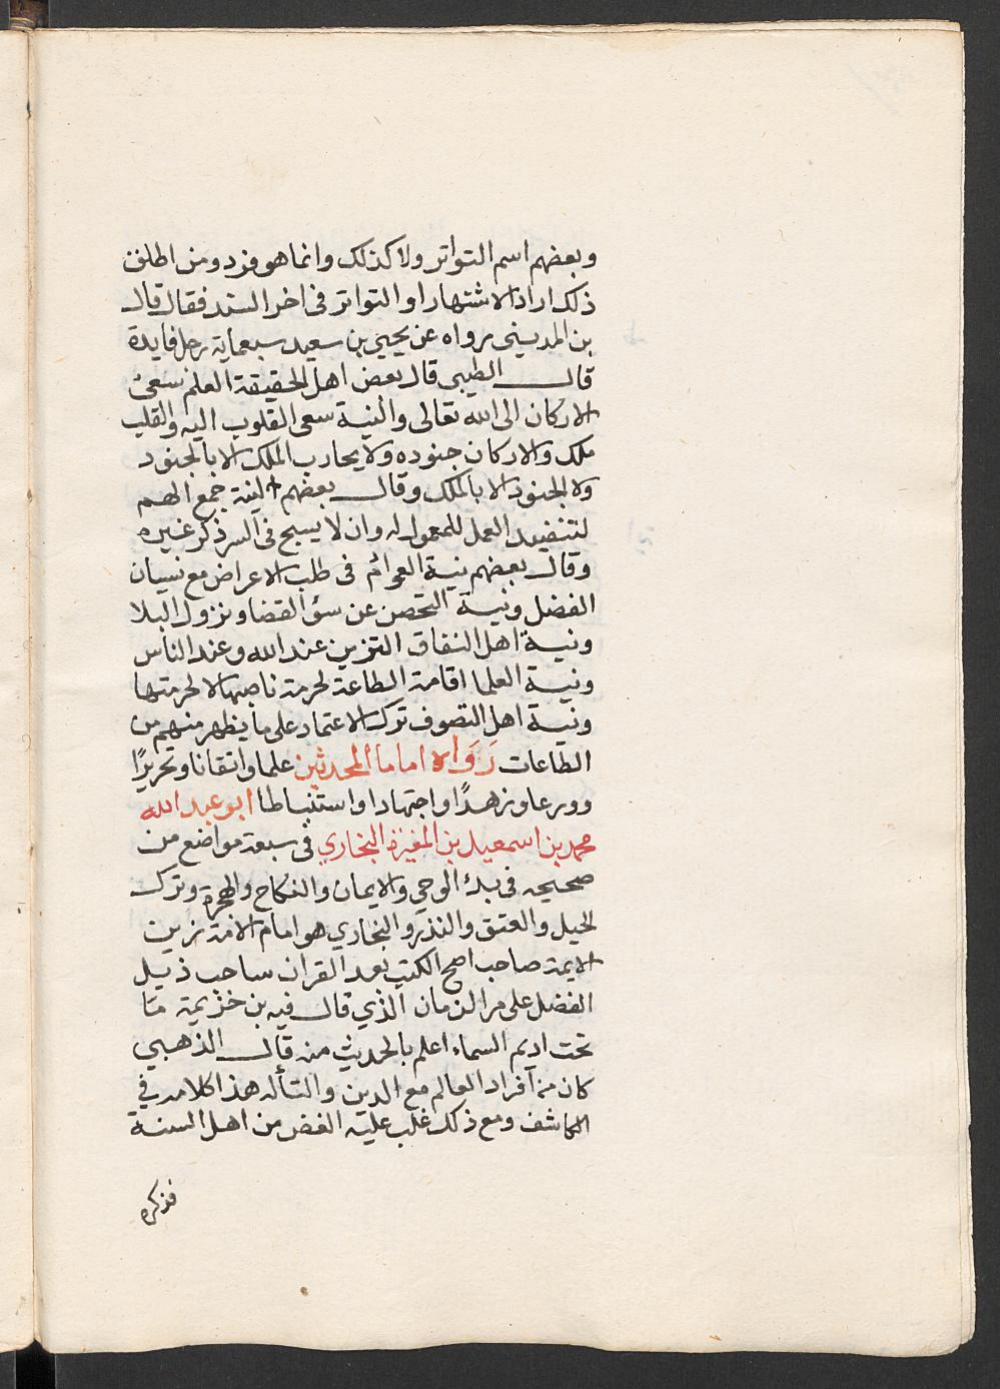 وبعضهم اسم التواتر ولا كذلك وانما هو فرد ومن اطلق
ذلك اراد الاشتهار او التواتر في اخر السند فقال قال
بن المديني رواه عن يحيي بن سعيد سبعماية رجل فايدة
قال الطيبي قال بعض اهل الحقيقة العلم سعي
الاركان الى الله تعالى والنية سعى القلوب اليه والقلب
ملك والاركان جنوده ولا يحارب الملك الا بالجنود
ولا الجنود الا بالملك وقال بعضهم النية جمع الهم
لتنفيد العمل للمعمول له وان لا يسبح في السر ذكر غيره
وقال بعضهم نية العوام في طلب الاعراض مع نسيان
الفضل ونية التحصن عن سؤ القضا ونزول البلا
ونية اهل النفاق التزين عند الله وعند الناس
ونية العلما اقامة الطاعة لحرمة ناصبها لا لحرمتها
ونية اهل التصوف ترك الاعتماد على ما يظهر منهم من
الطاعات رَوَاه اماما المحدثين علما واتقانا وتحريرًا
وورعا وزهدًا واجتهادا واستنباطا ابو عبد الله
محمد بن اسمعيل بن المغيرة البخاري في سبعة مواضع من
صحيحه في بدء الوحي والايمان والنكاح والهجرة وترك
الحيل والعتق والنذر والبخاري هو امام الامة زين
الايمة صاحب اصح الكتب بعد القران ساحب ذيل
الفضل على مر الزمان الذي قال فيه بن خزيمة مَا
تحت اديم السماء اعلم بالحديث منه قال الذهبي
كان من آفراد العالم مع الدين والتأله هذا كلامه في
الكاشف ومع ذلك غلب عليه الغض من اهل السنة
فذكره